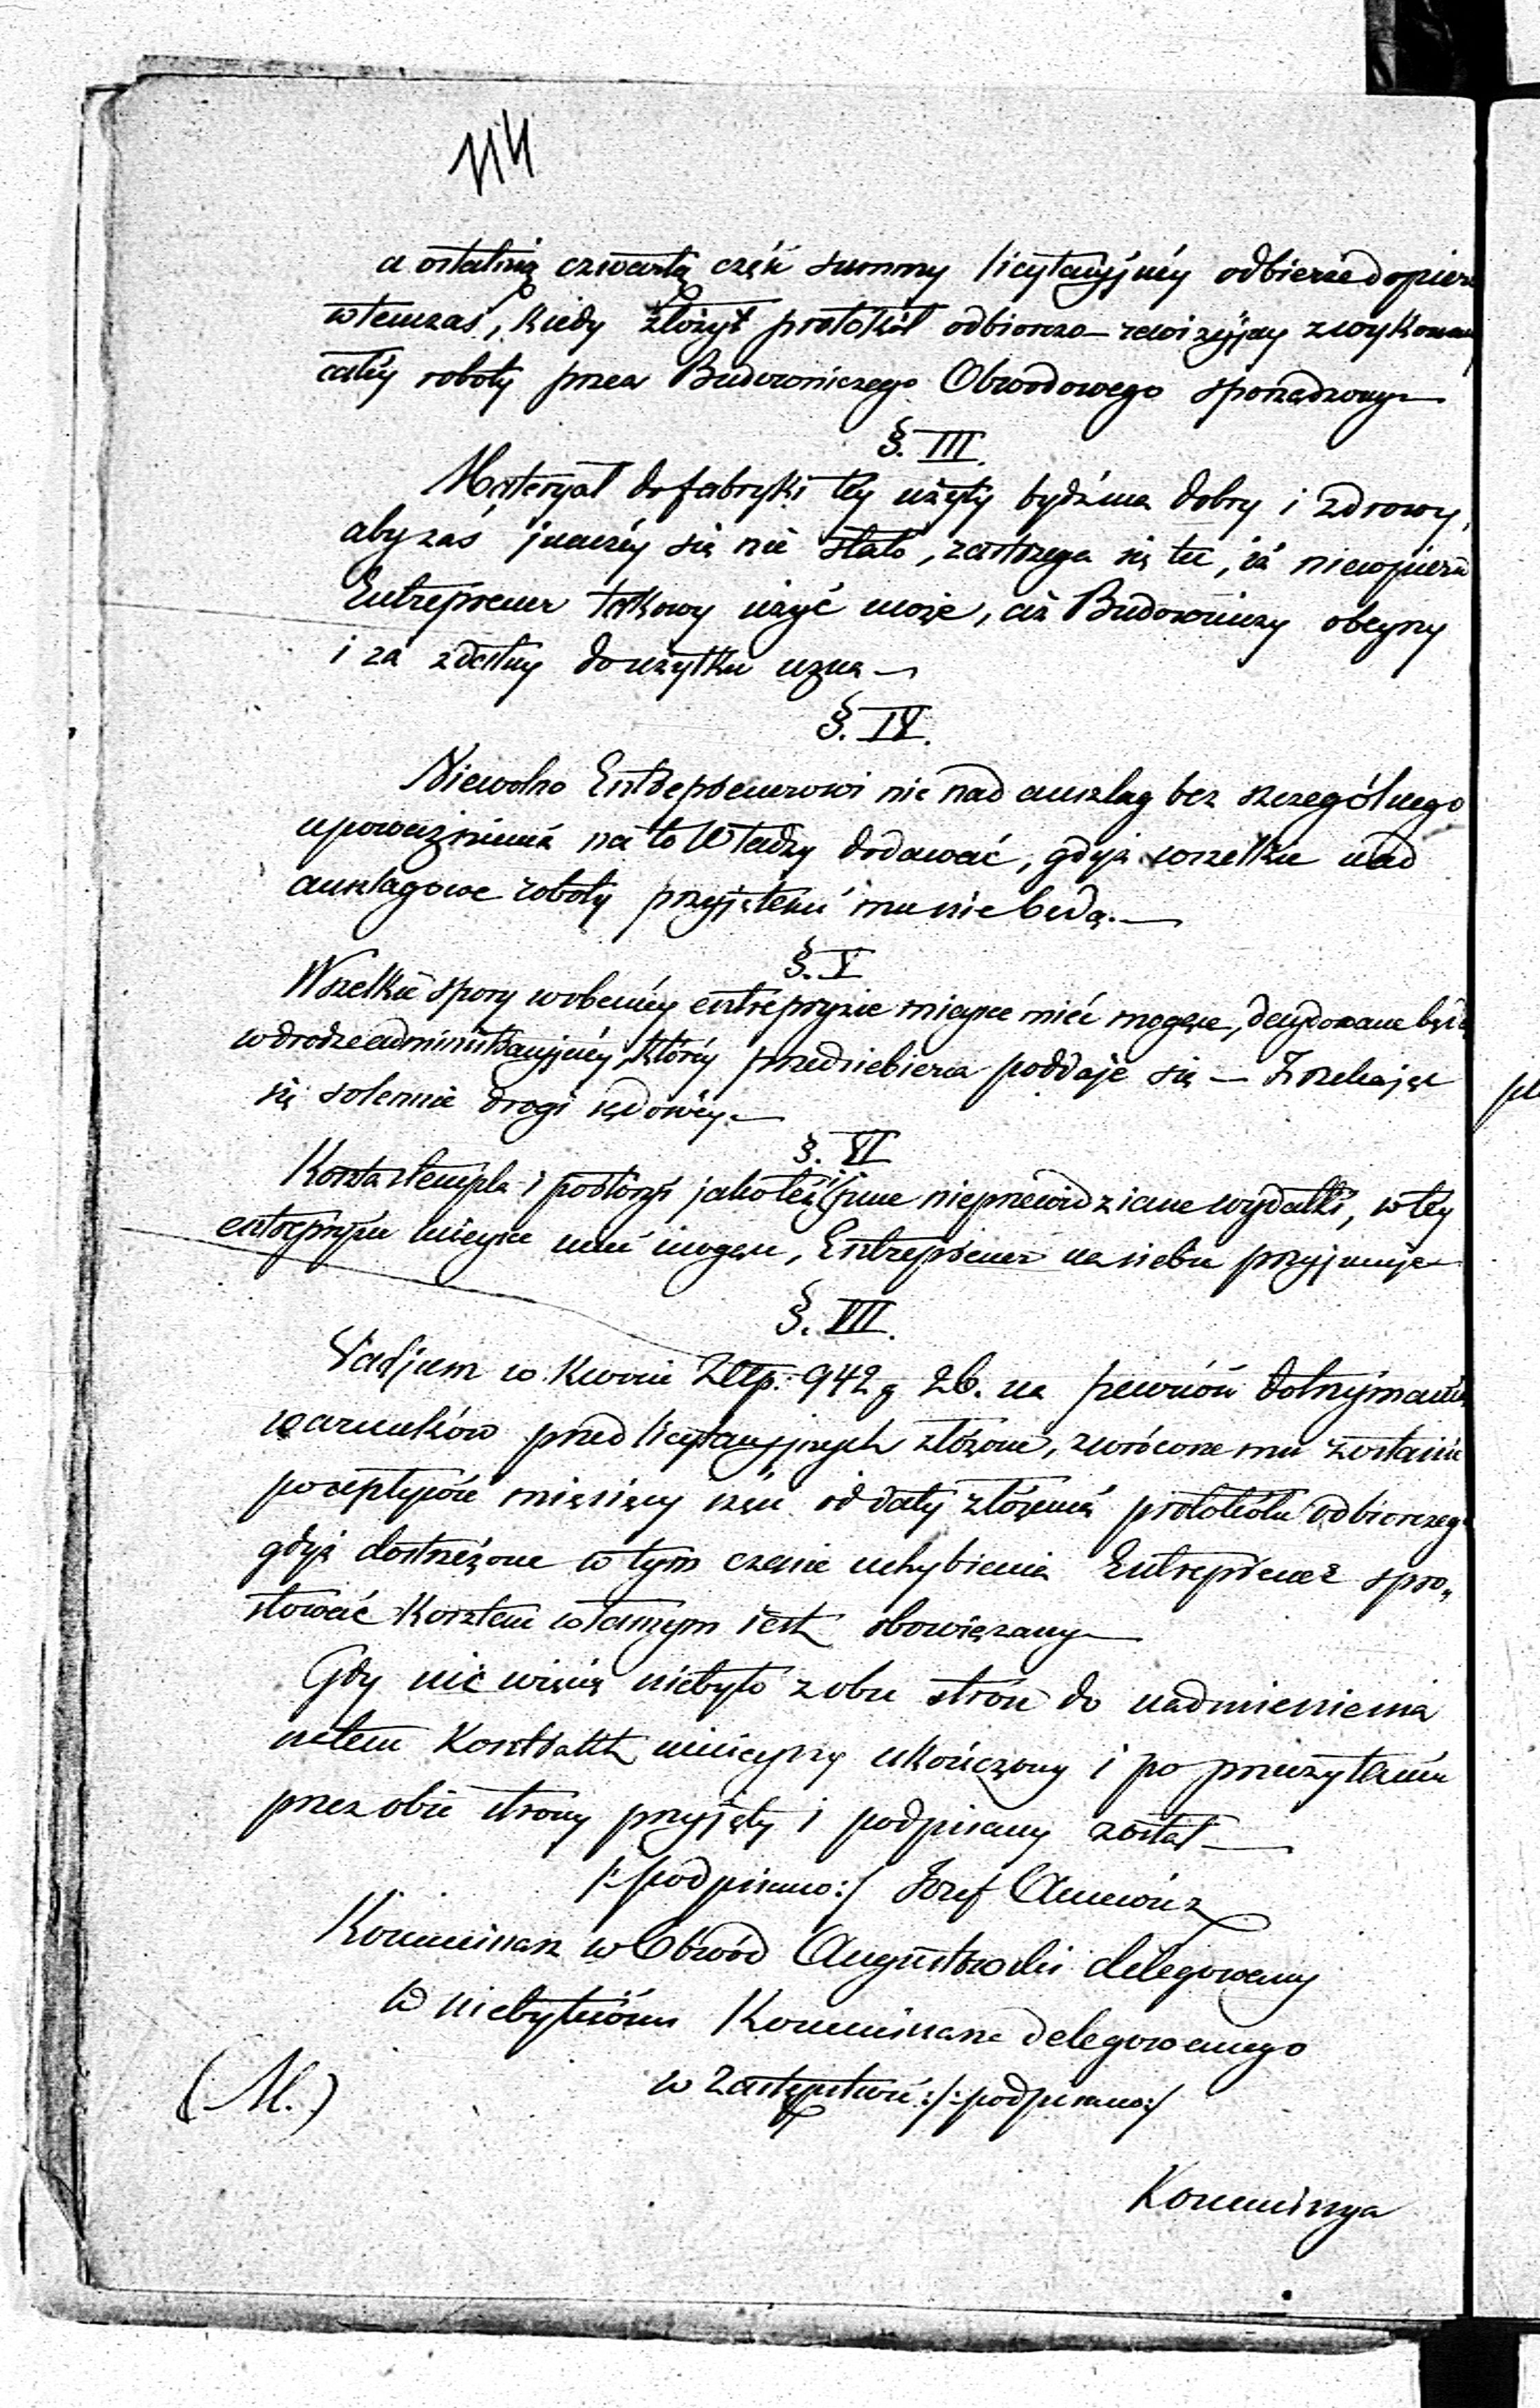 114
a ostatnią czwartą część summy licytacyjnéy odbierze dopiero
wtenczas, kiedy złoży protokół odbiorczo-rewizyjny z wykonaney
całéy roboty przez Budowniczego Obwodowego sporządzony —
§. III.
Materyał do fabryki téy użyty bydź ma dobry i zdrowy,
aby zaś inaczéy się nie stało, zastrzega się tu, iż niewpierw
Entreprener takowy użyć może, aż Budowniczy obeyrzy
i za zdatny do użytku uzna —
§. IV.
Niewolno Entreprenerowi nic nad anszlag bez szczególnego
upoważnienia na to Władzy dodawać, gdyż wszelkie nad
anszlagowe roboty przyjętemi mu nie będą. —
§. V
Wszelkie spory w obecnéy entrepryzie mieysce mieć mogące, decydowane będą
w drodze administracyjnéy, któréy przedsiebierca poddaje się — Zrzekając
się solennie drogi sądowéy. —
§. VI
Koszta stempla i podróży jakoteż inne nieprzewidziane wydatki, w téy
entrepryzie mieysce mieć mogące, Entreprener na siebie przyjmuje —
§. VII.
Vadjum w kwocie Złłp. 942 g 26. na pewność dotrzymania
warunków przedlicytacyjnych złożone, zwrócone mu zostanie
po upływie miesięcy sześć od daty złożenia protokółu odbiorczego
gdyż dostrzeżone w tym czasie uchybienia Entreprener spro„
stować kosztem własnym iest obowiązany —
Gdy nic więcéy niebyło z obu stron do nadmienienia
zatem kontrakt ninieyszy ukończony i po przeczytaniu
przez obie strony przyjęty i podpisany został —
/:podpisano:/ Jozef
Kommissarz w Obwód Augustowski delegowany
w niebytności Kommissarza delegowanego
w zastępstwie:/:podpisano:/
(M.)
Kommissya